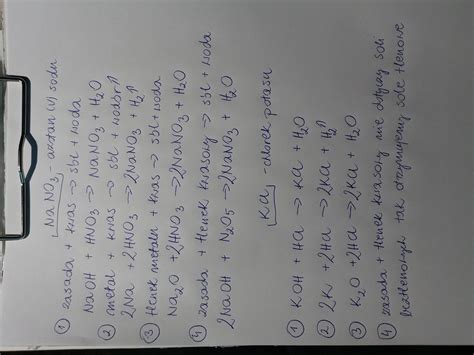 NaNO₃ - azotan (V) sodu
① zasada + kwas → sól + woda
NaOH + HNO₃ → NaNO₃ + H₂O
② metal + kwas → sól + wodór↑
2Na + 2HNO₃ → 2NaNO₃ + H₂↑
③ tlenek metalu + kwas → sól + woda
Na₂O + 2HNO₃ → 2NaNO₃ + H₂O
④ zasada + tlenek kwasowy → sól + woda
2NaOH + N₂O₅ → 2NaNO₃ + H₂O
KCl - chlorek potasu
① KOH + HCl → KCl + H₂O
② 2K + 2HCl → 2KCl + H₂↑
③ K₂O + 2HCl → 2KCl + H₂O
④ zasada + tlenek kwasowy nie dotyczy soli
beztlenowych tak otrzymujemy sole tlenowe